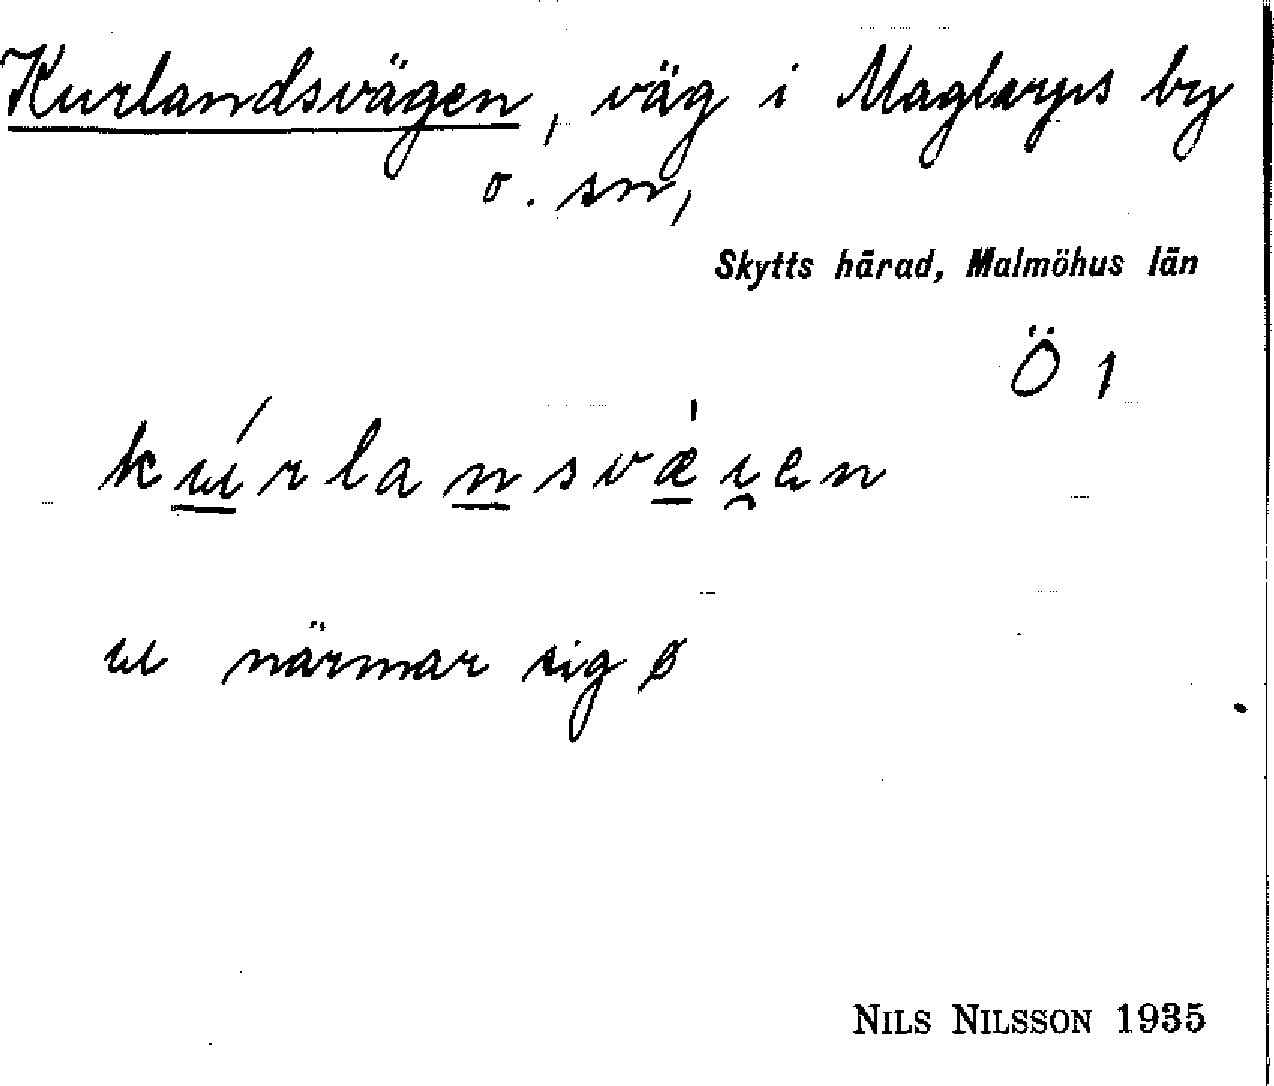 Kurlandsvägen, väg i Maglarps by
o. sn,
Skytts härad, Malmöhus län
Ö 1
kúrlansvæ̍i̯en
u närmar sig ø
NILS NILSSON 1935